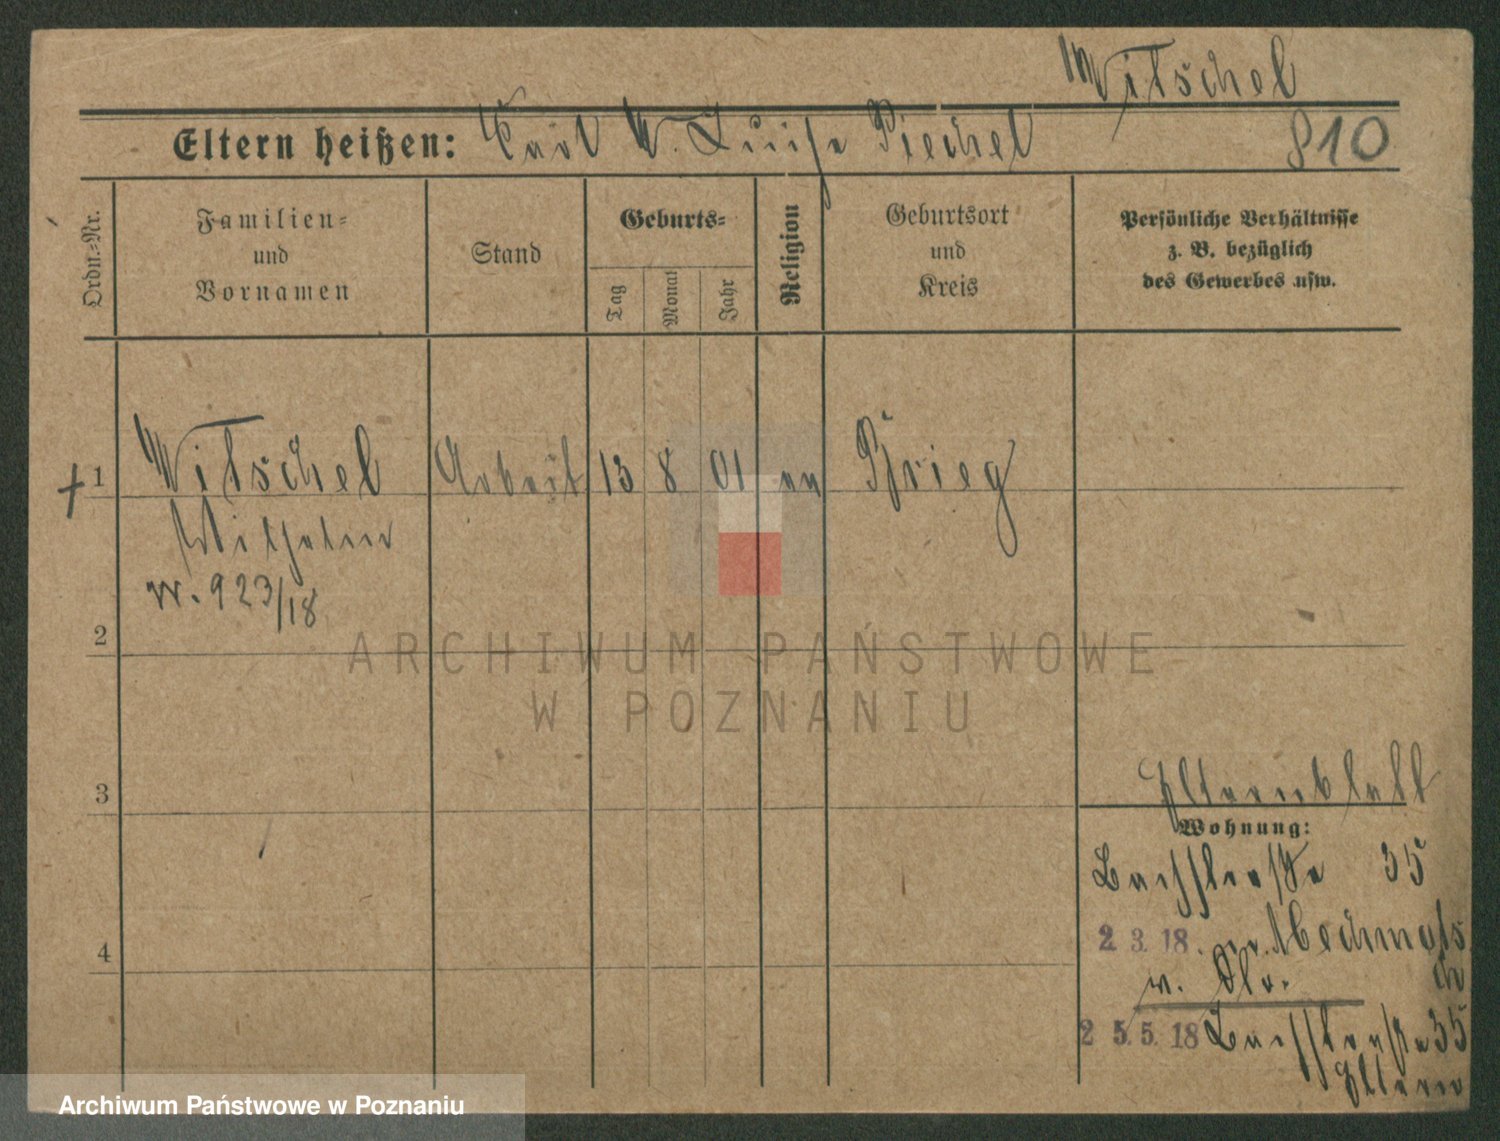 Witschel
Eltern heißen: Carl W. Luise Piechel 810
Ordn.-Nr.
Familien-
und
Vornamen
Stand
Geburts-
Tag
Monat
Jahr
Religion
Geburtsort
und
Kreis
Persönliche Verhältnisse
z. B. bezüglich
des Gewerbes usw.
+ 1 Witschel Arbeit 13 8 01 ev Brieg
Wilhelm
w. 923/18
2
3
4
Elternblatt
Wohnung:
35
2. 3. 18.
w.
2 5. 5. 18 35
Eltern
ARCHIWUM PAŃSTWOWE
W POZNANIU
Archiwum Państwowe w Poznaniu